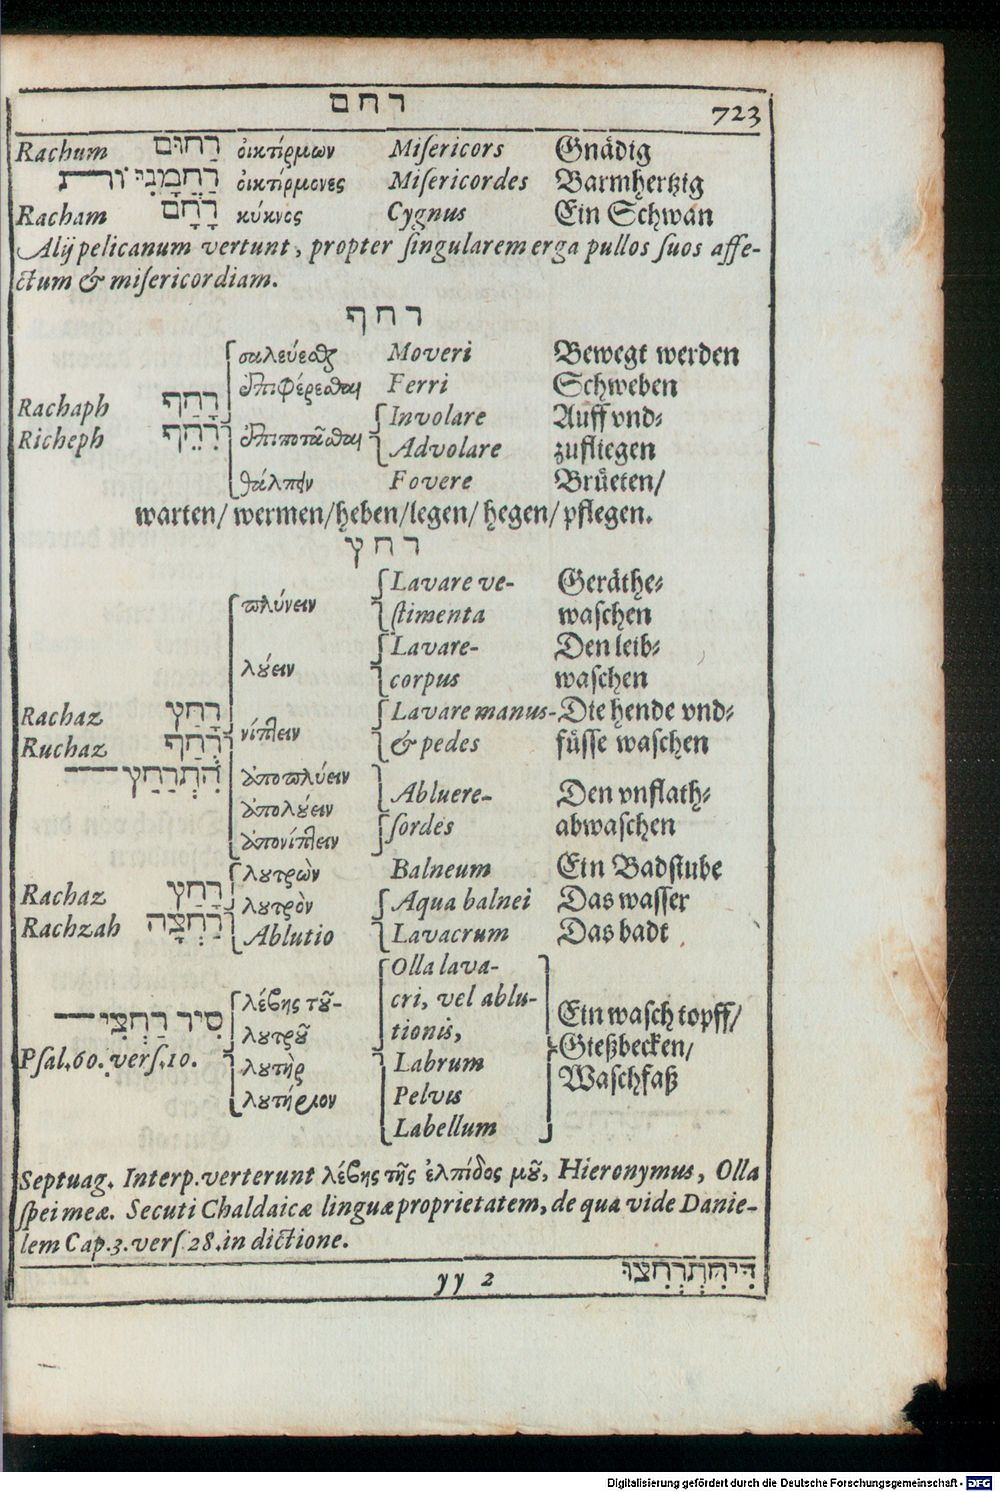 רחם
723
Rachum רַחוּם οἰκτίρμων Misericors Gnådig
רַחֲמָנִי וֹת οἰκτίρμονες Misericordes Barmhertzig
Racham רָחָם κύκνος Cygnus Ein Schwan
Alij pelicanum vertunt, propter singularem erga pullos suos affe-
ctum & misericordiam.
רחף
σαλεύεσθαι Moveri Bewegt werden
ἐπιφέρεσθαι Ferri Schweben
Rachaph רָחַף Involare Auff vnd-
Richeph רִחֵף ἐπιποτᾶσθαι Advolare zufliegen
θάλπειν Fovere Brůeten/
warten/ wermen/ heben/ legen/ hegen/ pflegen.
רחץ
πλύνειν Lavare ve- Geråthe-
stimenta waschen
λούειν Lavare- Den leib-
corpus waschen
Rachaz רָחַץ νίπτειν Lavare manus- Die hende vnd-
Ruchaz רֻחַף & pedes fůsse waschen
הִתְרַחַץ ἀποπλύειν Abluere- Den vnflath-
ἀπολούειν sordes abwaschen
ἀπονίπτειν
λουτρὼν Balneum Ein Badstube
Rachaz רָחַץ λουτρὸν Aqua balnei Das wasser
Rachzah רַחְצָה Ablutio Lavacrum Das badt
Olla lava-
סִיר רַחְצִי λέβης τοῦ- cri, vel ablu- Ein wasch topff/
λουτροῦ tionis, Gießbecken/
Psal. 60. vers. 10. λουτὴρ Labrum Waschfaß
λουτήριον Pelvis
Labellum
Septuag. Interp. verterunt λέβης τῆς ἐλπίδος μοῦ, Hieronymus, Olla
spei meæ. Secuti Chaldaicæ linguæ proprietatem, de qua vide Danie-
lem Cap. 3. vers 28. in dictione.
yy 2 דִּיהִתְרְחִצוּ
Digitalisierung gefördert durch die Deutsche Forschungsgemeinschaft - DFG